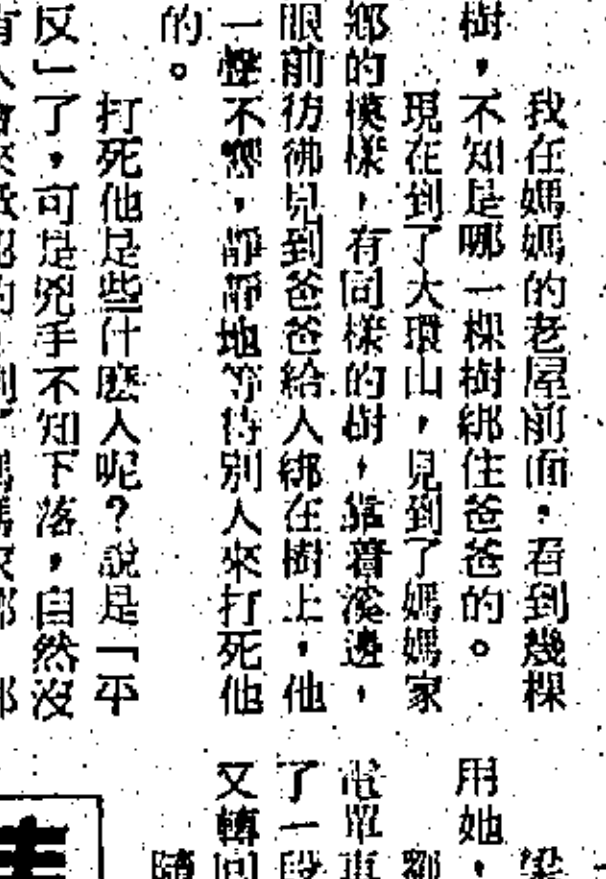 我在媽媽的老屋前面，看到幾棵
樹，不知是哪一棵樹綁住爸爸的。
現在到了大環山，見到了媽媽家
鄉的模樣，有同樣的樹，靠着溪邊，
眼前彷彿見到爸爸給人綁在樹上，他
一聲不響，靜靜地等待別人來打死他
的。
打死他是些什麽人呢？說是「平
反」了，可是兇手不知下落，自然沒
用她，
電單車
了一段
又轉回